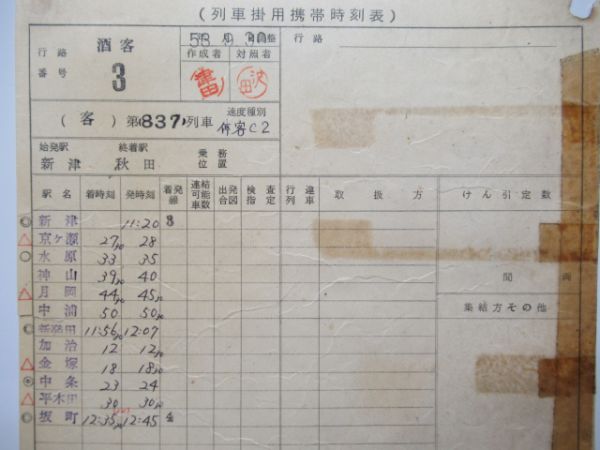 (列車掛用携帯時刻表)
行路番号 酒客 3
58 9 30 整
作成者 対照者
行路
(客) 第(837)列車
速度種別 停客C2
始発駅 新津 終着駅 秋田 乗務位置
駅名 着時刻 発時刻 着発線 連結可能車数 出発合図 検査指定 行違列車 取扱方 けん引定数
◎新津 11:20 3
△京ヶ瀬 27 28
○水原 33 35
神山 39 40
△月岡 44 45
中浦 50 50
◎新発田 11:56 12:07
加治 12 12
△金塚 18 18
◎中条 23 24
△平木田 30 30
◎坂町 12:35 12:45 4
集結方その他